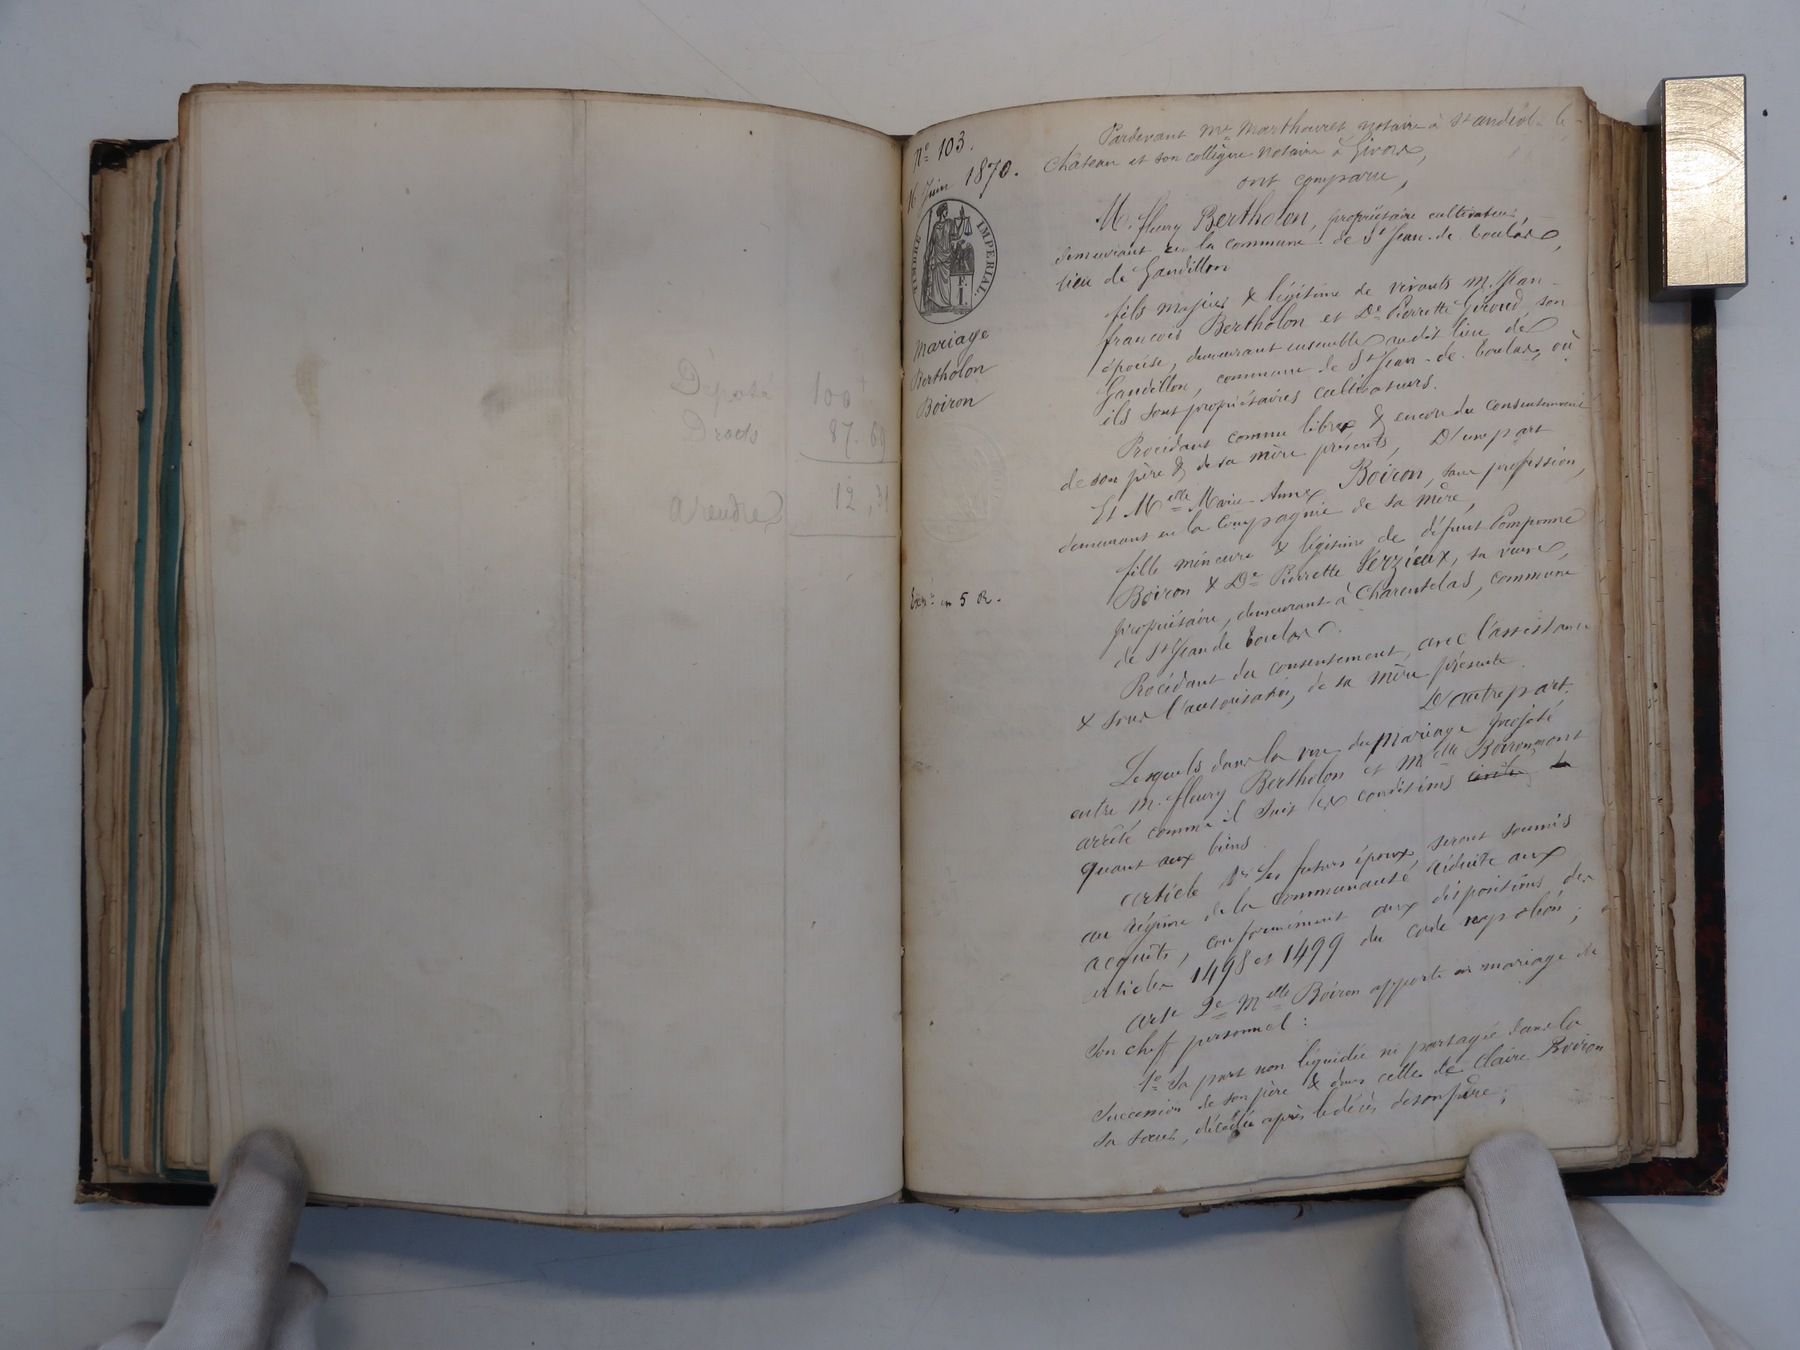 Déposé 100f
Droits 87.69
a rendre 12,31
No 103.
16 Juin 1870.
TIMBRE IMPERIAL.
Mariage
Bertholon
Boiron
en 5 R.
Pardevant Me Marthouret notaire à St andéol-le-
Château et son collègue notaire à Givors,
ont comparu,
M. fleury Bertholon, propriétaire cultivateur,
demeurant en la commune de St Jean-de-toulas,
lieu de Gaudillon
fils majeur & légitime de vivants M. Jean-
françois Bertholon et De Pierrette Giroud, son
épouse, demeurant ensemble audit lieu de
Gaudillon, commune de St Jean-de-toulas, où
ils sont propriétaires cultivateurs.
Procédant comme libre & encore du consentement
de son père & de sa mère présents, D'une part
Et Melle Marie-Anne Boiron, sans profession,
demeurant en la compagnie de sa mère,
fille mineure & légitime de défunt Pomponne
Boiron & De Pierrette Verzieux, sa veuve,
propriétaire, demeurant à Charentelas, commune
de St Jean de toulas.
Procédant du consentement, avec l'assistance
& sous l'autorisation de sa mère présente
D'autre part.
Lesquels dans la vue du mariage projeté
entre M. fleury Bertholon et Melle Boiron, ont
arrêté comme il suit les conditions civiles
quant aux biens
article 1er Les futurs époux seront soumis
au régime de la communauté réduite aux
acquêts, conformément aux dispositions des
articles 1498 et 1499 du code napoléon;
art 2e Melle Boiron apporte en mariage de
son cheff personnel:
1o Sa part non liquidée ni partagée dans la
succession de son père & dans celle de Claire Boiron
sa soeur, décédée après le décès de son père;